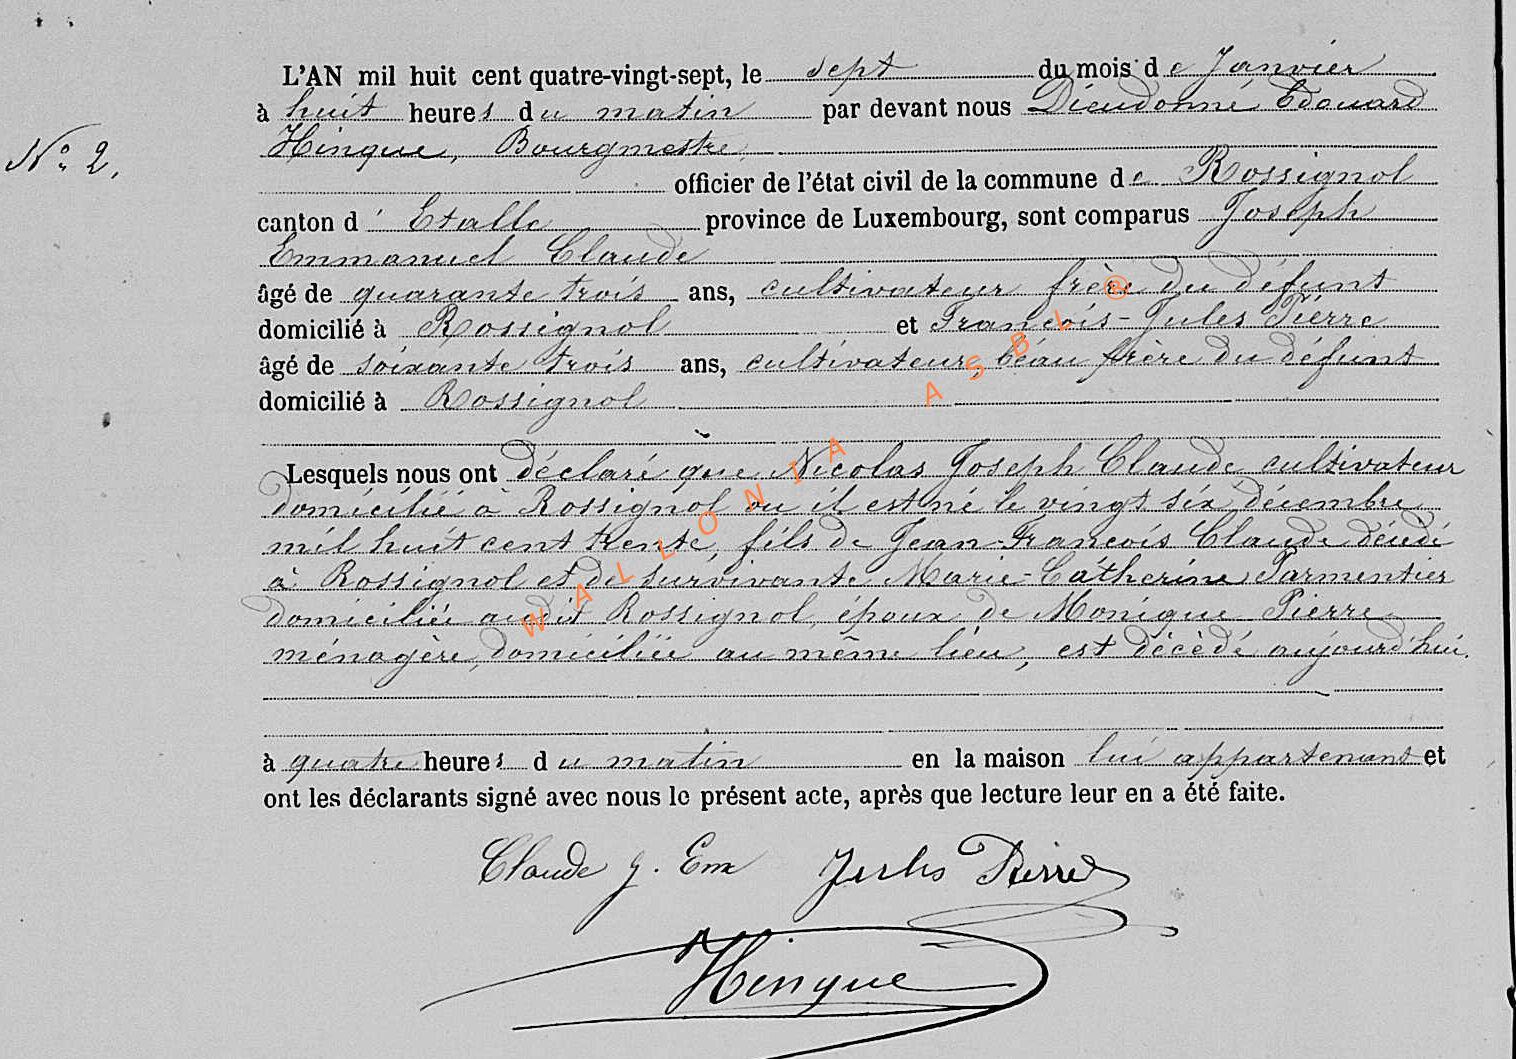 L'AN mil huit cent quatre-vingt-sept, le sept du mois de Janvier
à huit heures du matin par devant nous Dieudonné Edouard
N° 2. Hinque, Bourgmestre,
officier de l'état civil de la commune de Rossignol
canton d'Etalle province de Luxembourg, sont comparus Joseph
Emmanuel Claude
âgé de quarante trois ans, cultivateur frère du défunt
domicilié à Rossignol et François-Jules Pierre
âgé de soixante trois ans, cultivateur, beau frère du défunt
domicilié à Rossignol
Lesquels nous ont déclaré que Nicolas Joseph Claude cultivateur
domicilié à Rossignol ou il est né le vingt six décembre
mil huit cent trente, fils de Jean-François Claude décédé
à Rossignol et de survivante Marie-Catherine Parmentier
domiciliée audit Rossignol, époux de Monique Pierre
ménagère, domiciliée au même lieu, est décédé aujourd'hui.
à quatre heures du matin en la maison lui appartenant et
ont les déclarants signé avec nous le présent acte, après que lecture leur en a été faite.
Claude J. Em Jules Pierre
Hinque
WALLONIA ASBL ®